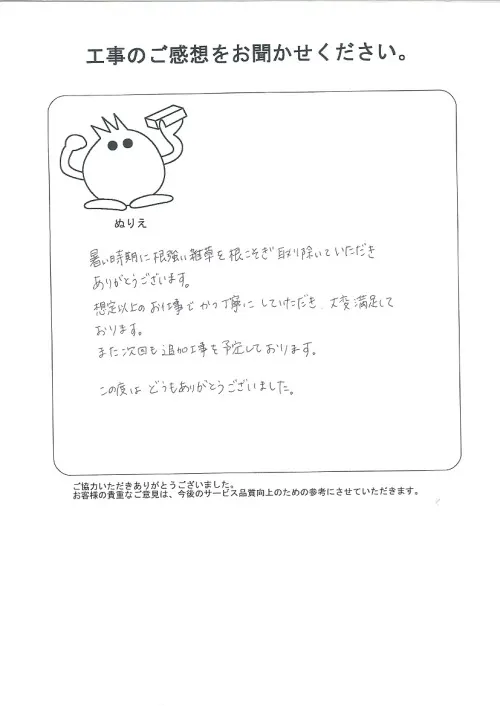 工事のご感想をお聞かせください。
ぬりえ
暑い時期に根強い雑草を根こそぎ取り除いていただき
ありがとうございます。
想定以上のお仕事でかつ丁寧にしていただき、大変満足して
おります。
また次回も追加工事を予定しております。
この度はどうもありがとうございました。
ご協力いただきありがとうございました。
お客様の貴重なご意見は、今後のサービス品質向上のための参考にさせていただきます。